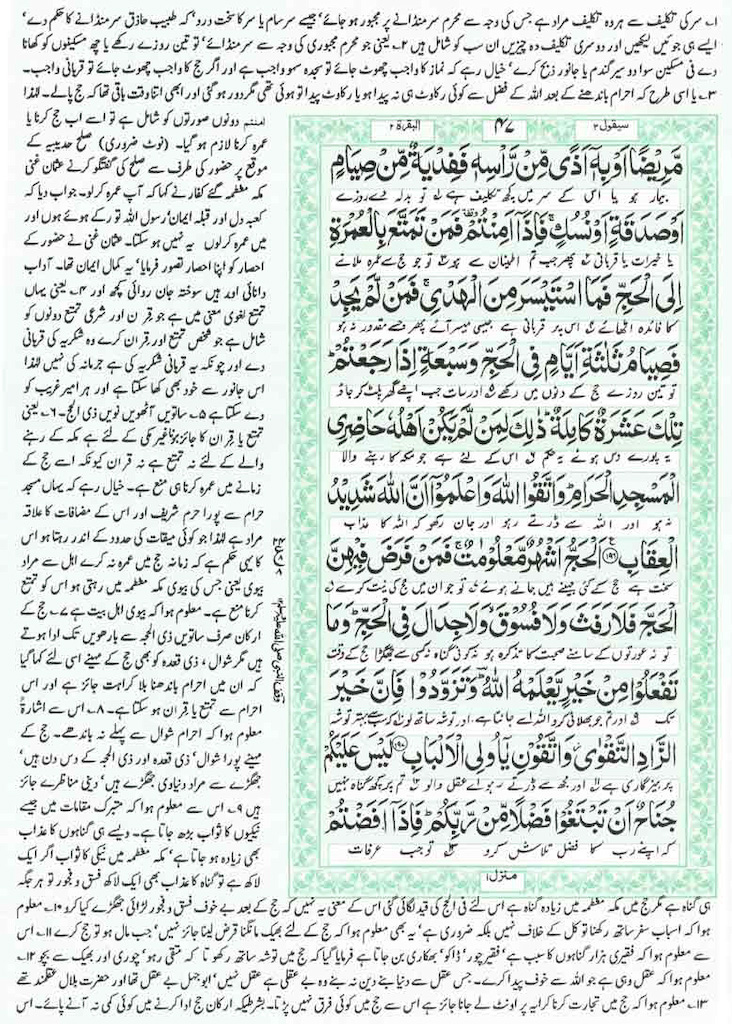 ۱۔ سر کی تکلیف سے ہر وہ تکلیف مراد ہے جس کی وجہ سے محرم سر منڈانے پر مجبور ہو جائے' جیسے سرسام یا سر کا سخت درد' کہ طبیب حاذق سر منڈانے کا حکم دے'
ایسے ہی جوئیں لیکھیں اور دوسری تکلیف دہ چیزیں ان سب کو شامل ہیں ۲۔ یعنی جو محرم مجبوری کی وجہ سے سر منڈائے' تو تین روزے رکھے یا چھ مسکینوں کو کھانا
دے فی مسکین سوا دو سیر گندم یا جانور ذبح کرے' خیال رہے کہ نماز کا واجب چھوٹ جائے تو سجدہ سہو واجب ہے اور اگر حج کا واجب چھوٹ جائے تو قربانی واجب۔
۳۔ یا اسی طرح کہ احرام باندھنے کے بعد اللہ کے فضل سے کوئی رکاوٹ ہی نہ پیدا ہو یا رکاوٹ پیدا تو ہوئی تھی مگر دور ہو گئی اور ابھی اتنا وقت باقی تھا کہ حج پالے۔ لہٰذا
سیقول ۲
۴۷
البقرة ۲
مَّرِيْضًا اَوْ بِهٖۤ اَذًى مِّنْ رَّاْسِهٖ فَفِدْيَةٌ مِّنْ صِيَامٍ
بیمار ہو یا اس کے سر میں کچھ تکلیف ہے تو بدلہ دے روزے
اَوْ صَدَقَةٍ اَوْ نُسُكٍۚ فَاِذَاۤ اَمِنْتُمْ فَمَنْ تَمَتَّعَ بِالْعُمْرَةِ
یا خیرات یا قربانی پھر جب تم اطمینان سے ہو تو جو حج سے عمرہ ملانے
اِلَى الْحَجِّ فَمَا اسْتَيْسَرَ مِنَ الْهَدْيِۚ فَمَنْ لَّمْ يَجِدْ
کا فائدہ اٹھائے اس پر قربانی ہے جیسی میسر آئے پھر جسے مقدور نہ ہو
فَصِيَامُ ثَلٰثَةِ اَيَّامٍ فِى الْحَجِّ وَسَبْعَةٍ اِذَا رَجَعْتُمْ
تو تین روزے حج کے دنوں میں رکھے اور سات جب اپنے گھر پلٹ کر جاؤ
تِلْكَ عَشَرَةٌ كَامِلَةٌ ذٰلِكَ لِمَنْ لَّمْ يَكُنْ اَهْلُهٗ حَاضِرِى
یہ پورے دس ہوئے یہ حکم اس کے لئے ہے جو مکہ کا رہنے والا
الْمَسْجِدِ الْحَرَامِ وَاتَّقُوا اللّٰهَ وَاعْلَمُوْۤا اَنَّ اللّٰهَ شَدِيْدُ
نہ ہو اور اللہ سے ڈرتے رہو اور جان رکھو کہ اللہ کا عذاب
الْعِقَابِ ﴿۱۹۶﴾ اَلْحَجُّ اَشْهُرٌ مَّعْلُوْمٰتٌۚ فَمَنْ فَرَضَ فِيْهِنَّ
سخت ہے حج کے کئی مہینے ہیں جانے ہوئے تو جو ان میں حج کی نیت کرے
الْحَجَّ فَلَا رَفَثَ وَلَا فُسُوْقَ وَلَا جِدَالَ فِى الْحَجِّ وَمَا
تو نہ عورتوں کے سامنے صحبت کا تذکرہ ہو نہ کوئی گناہ نہ کسی سے جھگڑا حج کے وقت
تَفْعَلُوْا مِنْ خَيْرٍ يَّعْلَمْهُ اللّٰهُ وَتَزَوَّدُوْا فَاِنَّ خَيْرَ
تک اور تم جو بھلائی کرو اللہ اسے جانتا ہے اور توشہ ساتھ لو کہ سب سے بہتر توشہ
الزَّادِ التَّقْوٰى وَاتَّقُوْنِ يٰۤاُولِى الْاَلْبَابِ ﴿۱۹۷﴾ لَيْسَ عَلَيْكُمْ
پرہیزگاری ہے اور مجھ سے ڈرتے رہو اے عقل والو تم پر کچھ گناہ نہیں
جُنَاحٌ اَنْ تَبْتَغُوْا فَضْلًا مِّنْ رَّبِّكُمْ فَاِذَاۤ اَفَضْتُمْ
کہ اپنے رب کا فضل تلاش کرو تو جب عرفات
منزل ۱
وقف النبی صلی اللہ علیہ وسلم
امنتم دونوں صورتوں کو شامل ہے تو اسے اب حج کرنا یا
عمرہ کرنا لازم ہو گیا۔ (نوٹ ضروری) صلح حدیبیہ کے
موقع پر حضور کی طرف سے صلح کی گفتگو کرنے عثمان غنی
مکہ معظمہ گئے کفار نے کہا کہ آپ عمرہ کرلو۔ جواب دیا کہ
کعبہ دل اور قبلہ ایمان' رسول اللہ تو رکے ہوئے ہوں اور
میں عمرہ کرلوں یہ نہیں ہو سکتا۔ عثمان غنی نے حضور کے
احصار کو اپنا احصار تصور فرمایا' یہ کمال ایمان تھا۔ آداب
دانائی اور ہیں سوختہ جان روائی کچھ اور ۴۔ یعنی یہاں
تمتع لغوی معنی میں ہے جو قرن اور شرعی تمتع دونوں کو
شامل ہے جو شخص تمتع اور قران کرے وہ شکریہ کی قربانی
دے اور چونکہ یہ قربانی شکریہ کی ہے جرمانہ کی نہیں لہٰذا
اس جانور سے خود بھی کھا سکتا ہے اور ہر امیر غریب کو
دے سکتا ہے ۵۔ ساتویں آٹھویں نویں ذی الحج۔ ۶۔ یعنی
تمتع یا قران کا جائز ہونا غیر مکی کے لئے ہے مکہ کے رہنے
والے کے لئے نہ تمتع ہے نہ قران کیونکہ اسے حج کے
زمانے میں عمرہ کرنا ہی منع ہے۔ خیال رہے کہ یہاں مسجد
حرام سے پورا حرم شریف اور اس کے مضافات کا علاقہ
مراد ہے لہٰذا جو کوئی میقات کی حدود کے اندر رہتا ہو اس
کا یہی حکم ہے کہ زمانہ حج میں عمرہ نہ کرے اہل سے مراد
بیوی یعنی جس کی بیوی مکہ معظمہ میں رہتی ہو اس کو تمتع
کرنا منع ہے۔ معلوم ہوا کہ بیوی اہل بیت ہے ۷۔ حج کے
ارکان صرف ساتویں ذی الحجہ سے بارھویں تک ادا ہوتے
ہیں مگر شوال، ذی قعدہ کو بھی حج کے مہینے اسی لئے کہا گیا
کہ ان میں احرام باندھنا بلا کراہت جائز ہے اور اس
احرام سے تمتع یا قران ہو سکتا ہے۔ ۸۔ اس سے اشارۃً
معلوم ہوا کہ احرام شوال سے پہلے نہ باندھے۔ حج کے
مہینے پورا شوال' ذی قعدہ اور ذی الحجہ کے دس دن ہیں'
جھگڑے سے مراد دنیاوی جھگڑے ہیں' دینی مناظرے جائز
ہیں ۹۔ اس سے معلوم ہوا کہ متبرک مقامات میں جیسے
نیکیوں کا ثواب بڑھ جاتا ہے۔ ویسے ہی گناہوں کا عذاب
بھی زیادہ ہو جاتا ہے' مکہ معظمہ میں نیکی کا ثواب اگر ایک
لاکھ ہے تو گناہ کا عذاب بھی ایک لاکھ فسق و فجور تو ہر جگہ
ہی گناہ ہے مگر حج میں مکہ معظمہ میں زیادہ گناہ ہے اس لئے فی الحج کی قید لگائی گئی اس کے معنی یہ نہیں کہ حج کے بعد بے خوف فسق و فجور لڑائی جھگڑے کیا کرو ۱۰۔ معلوم
ہوا کہ اسباب سفر ساتھ رکھنا توکل کے خلاف نہیں بلکہ ضروری ہے' یہ بھی معلوم ہوا کہ حج کے لئے بھیک مانگنا قرض لینا جائز نہیں' جب مال ہو تو حج کرے ۱۱۔ اس
سے معلوم ہوا کہ فقیری ہزار گناہوں کا سبب ہے' فقیر چور' ڈاکو' بھکاری بن جاتا ہے فرمایا گیا کہ حج میں توشہ ساتھ رکھو تاکہ متقی رہو' چوری اور بھیک سے بچو ۱۲۔
معلوم ہوا کہ عقل وہی ہے جو اللہ سے خوف پیدا کرے۔ جس عقل سے دنیا بنے دین نہ بنے وہ بے عقلی ہے عقل نہیں' ابوجہل بے عقل تھا اور حضرت بلال عقلمند تھے
۱۳۔ معلوم ہوا کہ حج میں تجارت کرنا کرایہ پر اونٹ لے جانا جائز ہے اس سے حج میں کوئی فرق نہیں پڑتا۔ بشرطیکہ ارکان حج ادا کرنے میں کوئی کمی نہ آنے پائے۔ اس